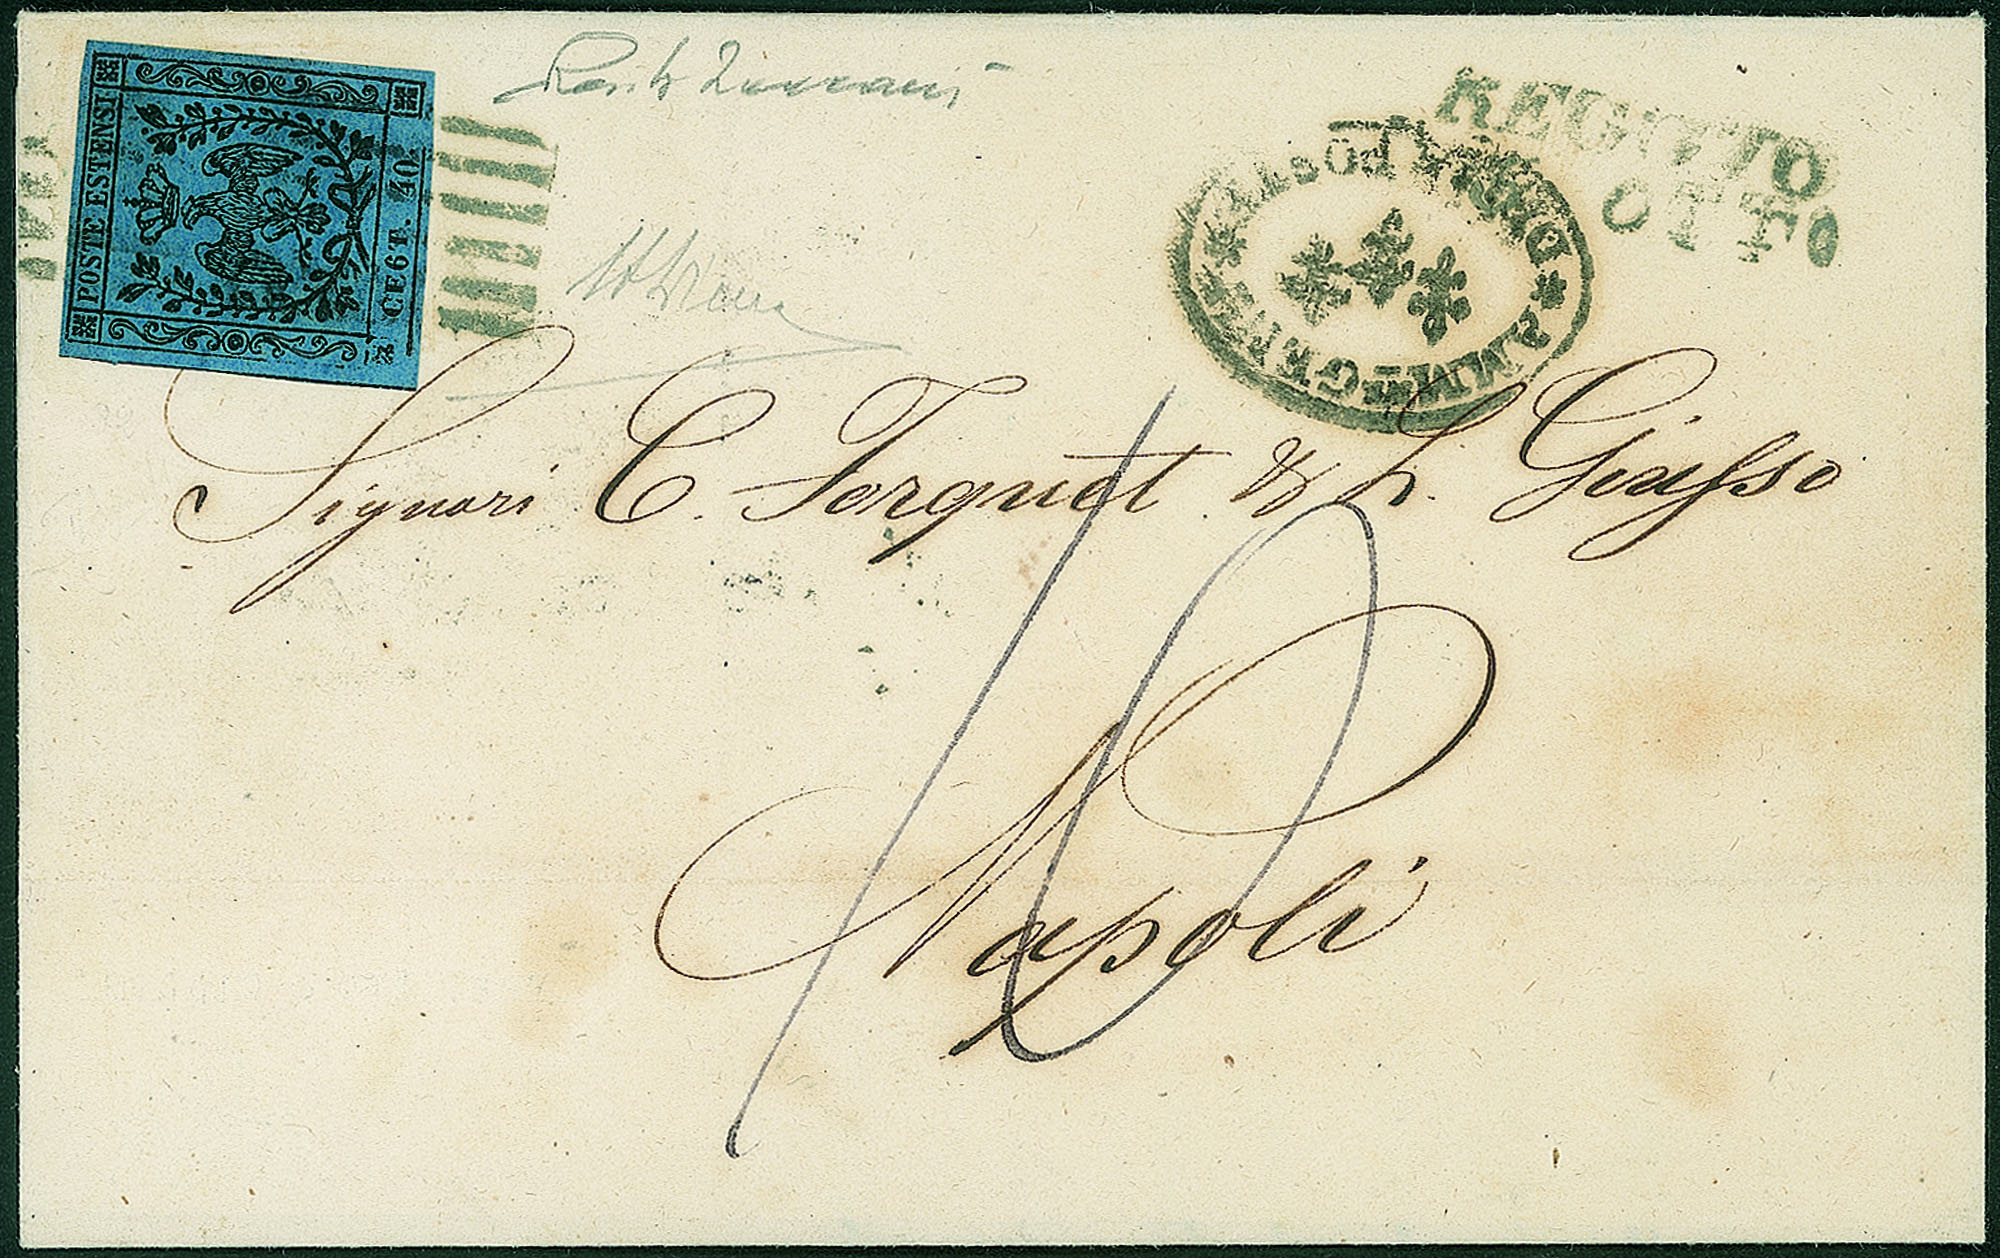 POSTE ESTENSI
CE6T. 40.
REGGIO
OTTO
AMM.E GEN. DELLE POSTE
Signori C. Forquet & L. Giusso
10
Napoli